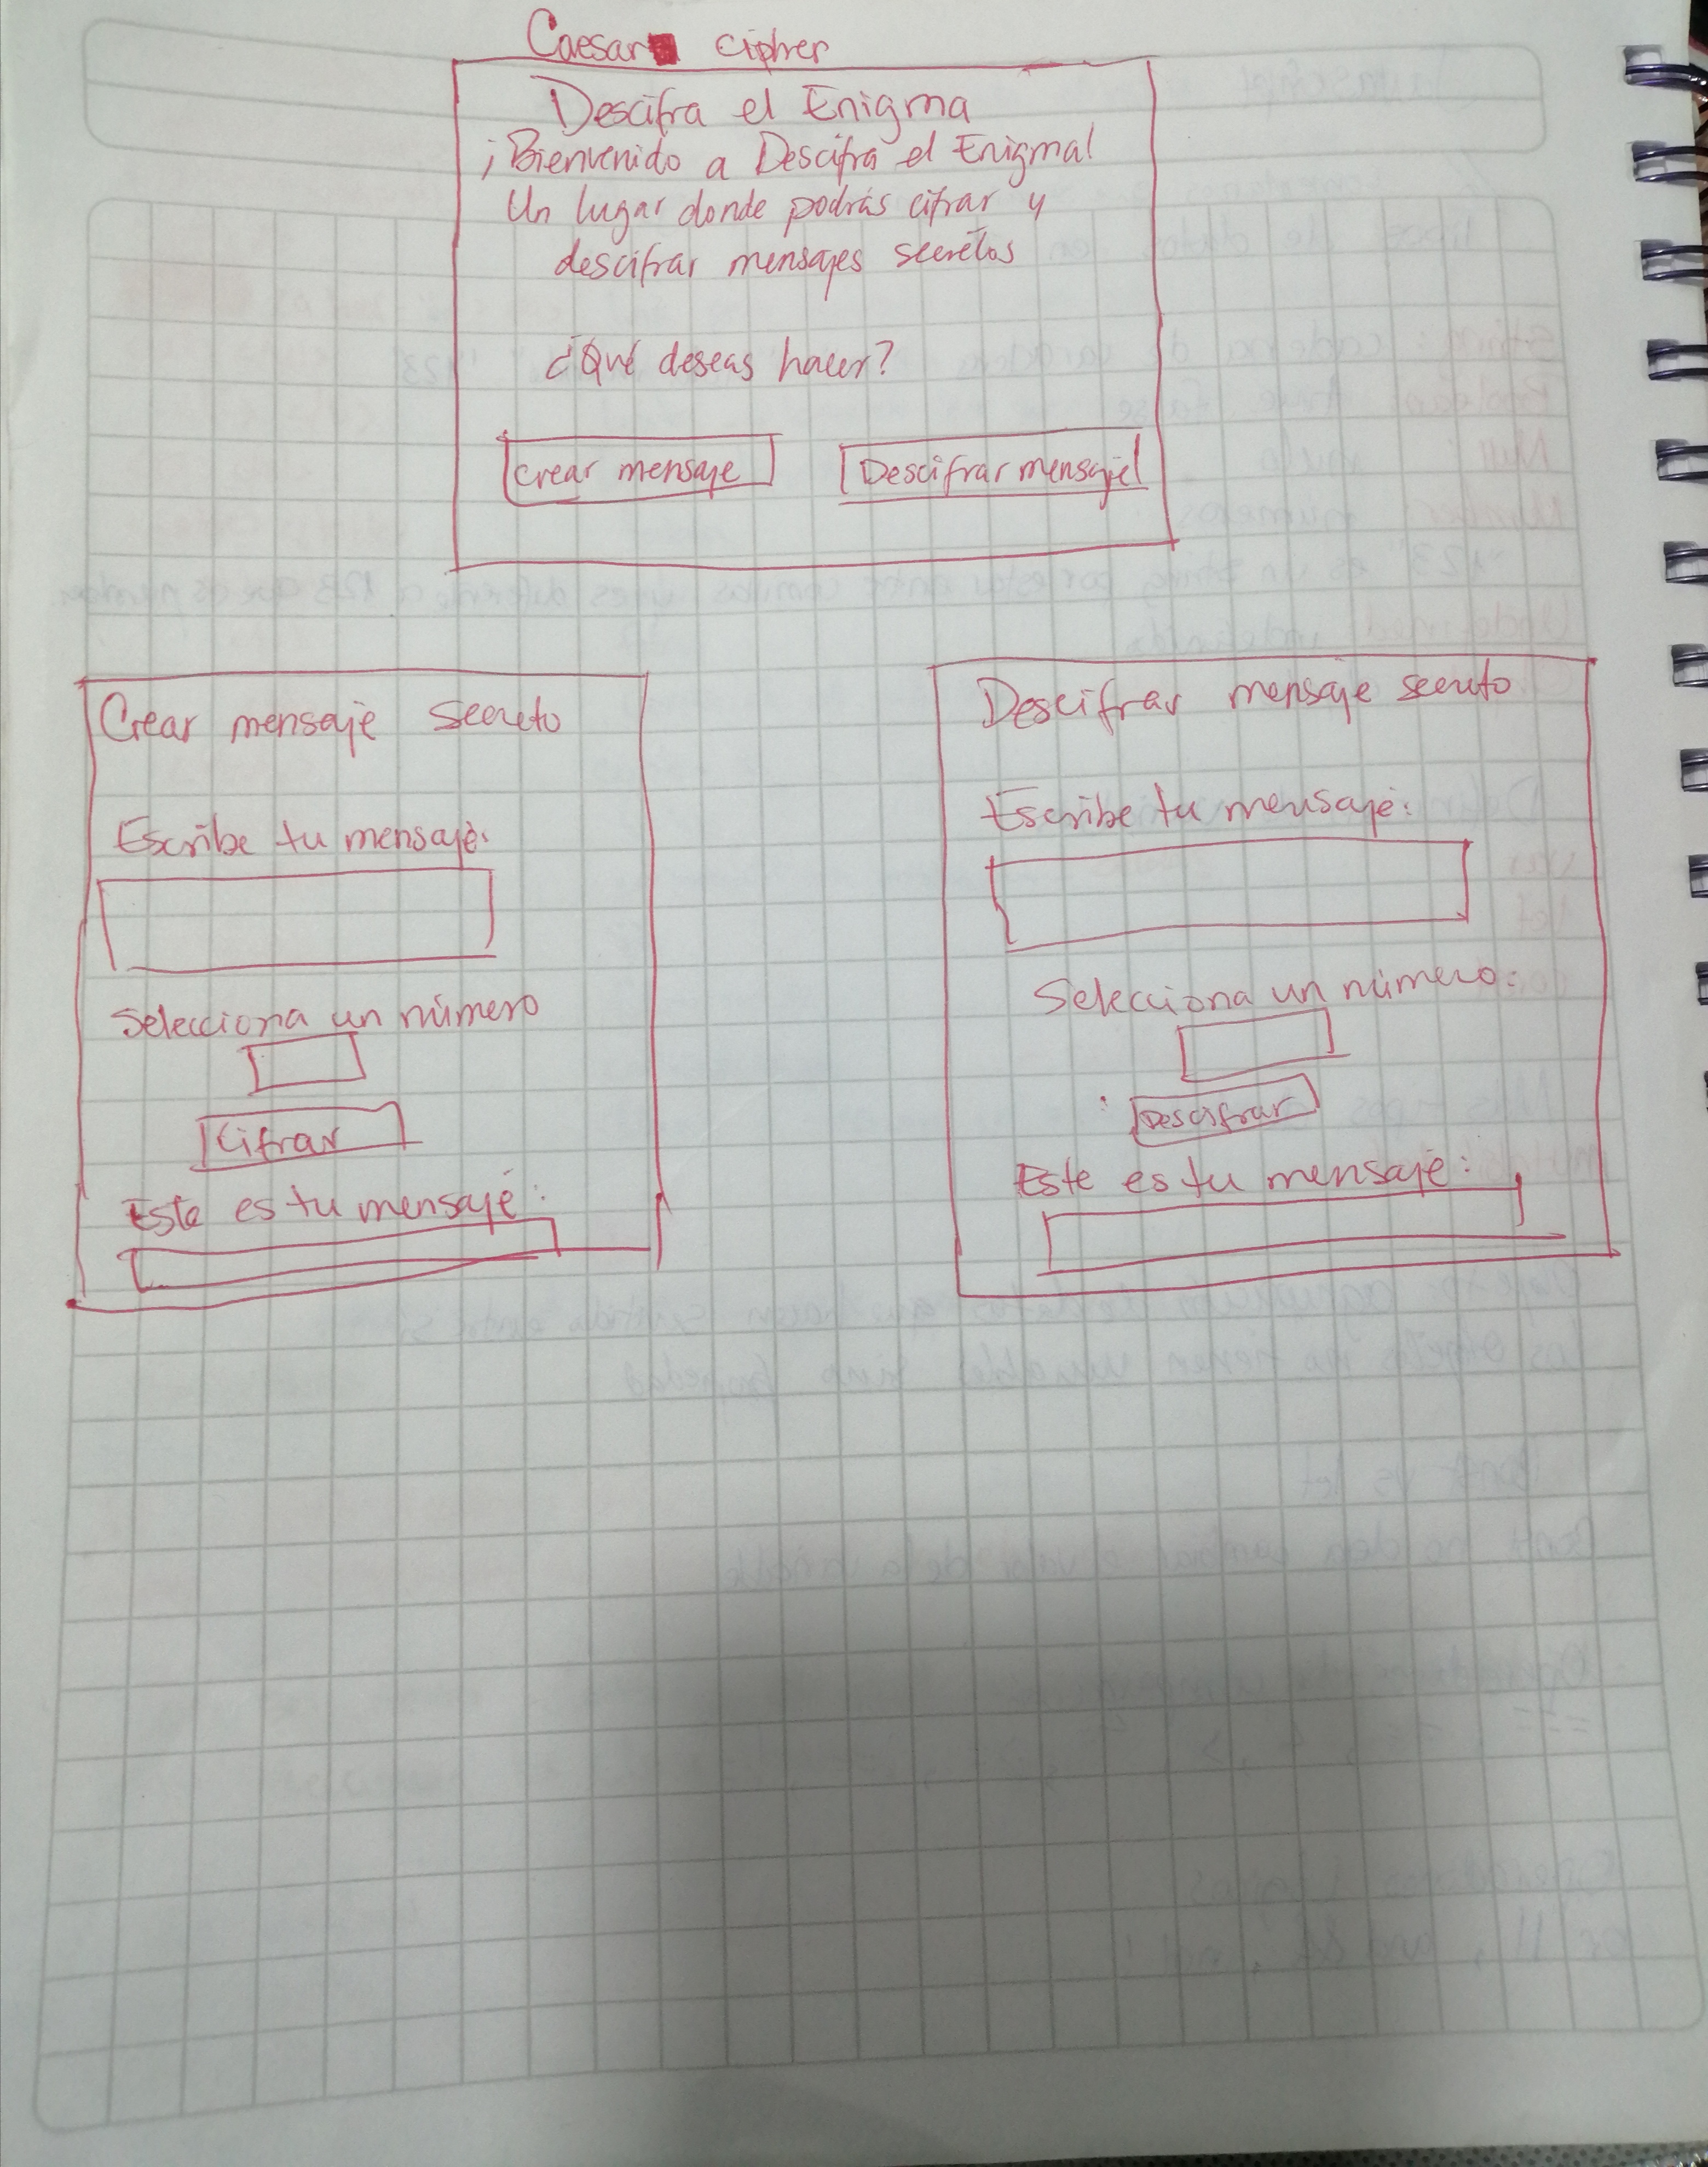 Caesar cipher
Descifra el Enigma
¡Bienvenido a Descifra el Enigma!
Un lugar donde podrás cifrar y
descifrar mensajes secretos
¿Qué deseas hacer?
crear mensaje
Descifrar mensaje
Crear mensaje secreto
Escribe tu mensaje:
Selecciona un número
Cifrar
Este es tu mensaje:
Descifrar mensaje secreto
Escribe tu mensaje:
Selecciona un número:
Descifrar
Este es tu mensaje: